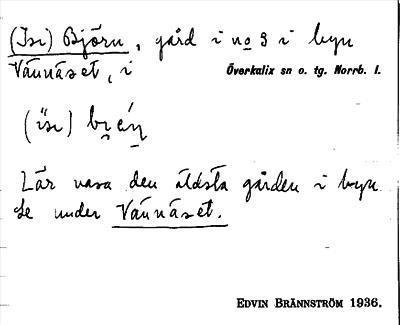 (Isi) Björn, gård i no 3 i byn
Vännäset, i Överkalix sn o. tg. Norrb. l.
(isi)
Lär vara den äldsta gården i byn
Se under Vännäset.
EDVIN BRÄNNSTRÖM 1936.